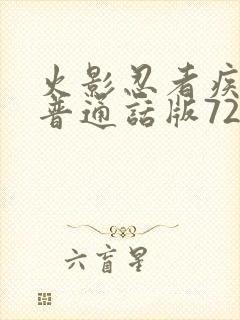 火影忍者疾
普通話版72
六盲星